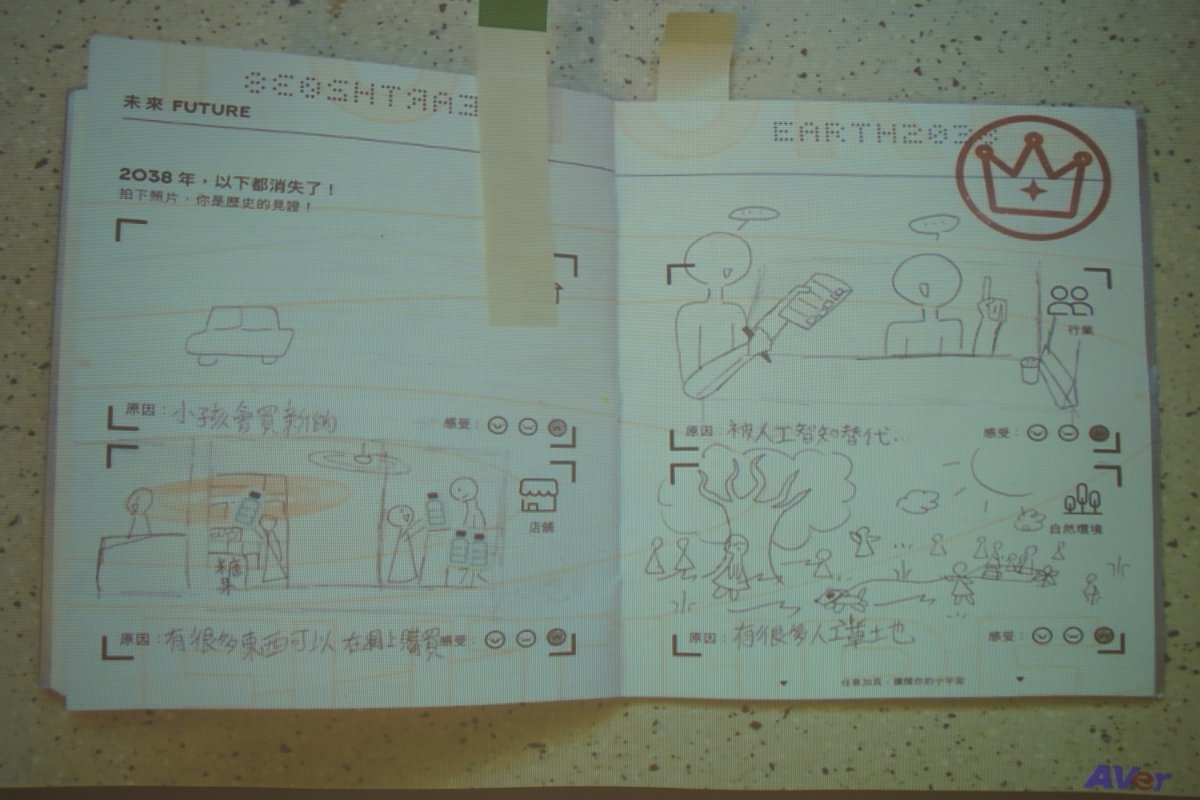 8E0SHTЯAƎ
未來 FUTURE
2038 年，以下都消失了！
拍下照片，你是歷史的見證！
原因：小孩會買新的
感受：
店鋪
糖果
水
原因：有很多東西可以在網上購買
感受：
EARTH2038
行業
原因：被人工智知替代…
感受：
自然環境
原因：有很多人工草土也
感受：
任意加頁，讀閱你的小宇宙
AVer